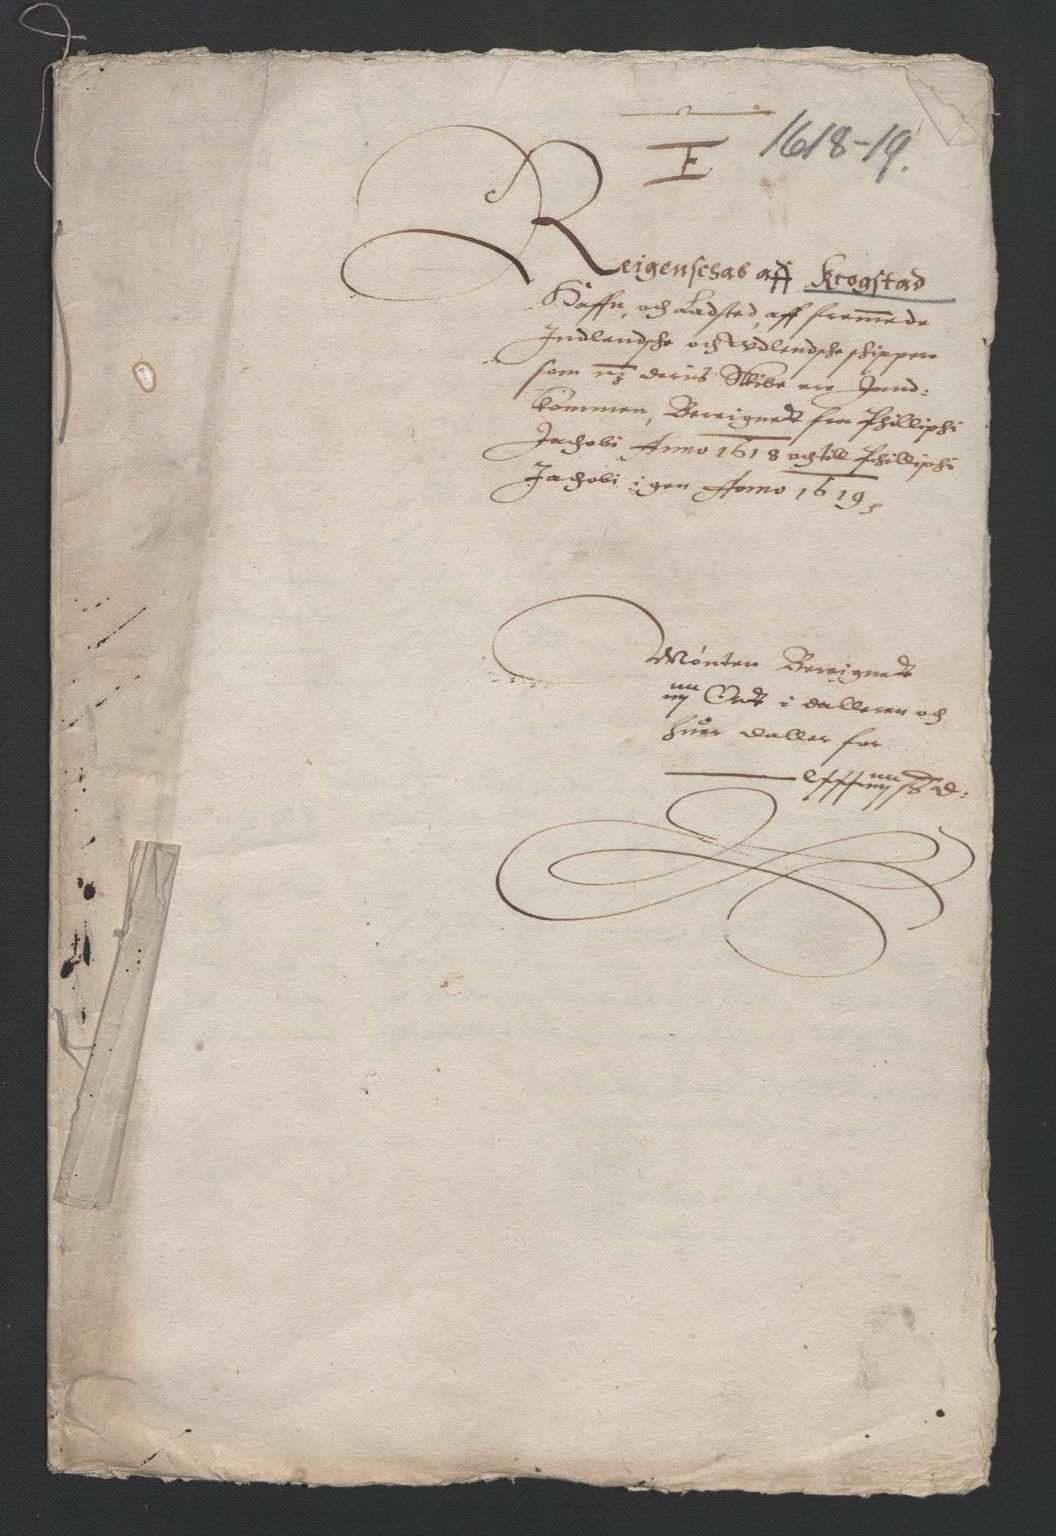 1618-19.
F
Reigenschab aff Krogstad
Håffn, och Ladsted, aff fremmede
Indlendsche och Vdlendsche schippere
som mz deris Skibe ere Jnd:
kommen, Bereignedt fra Philliphi
Jachobi Anno 1618 och till Philliphi
Jachobi igen Anno 1619,
Mønten Bereignedt
iiij Ordt i dalleren och
huer daller for